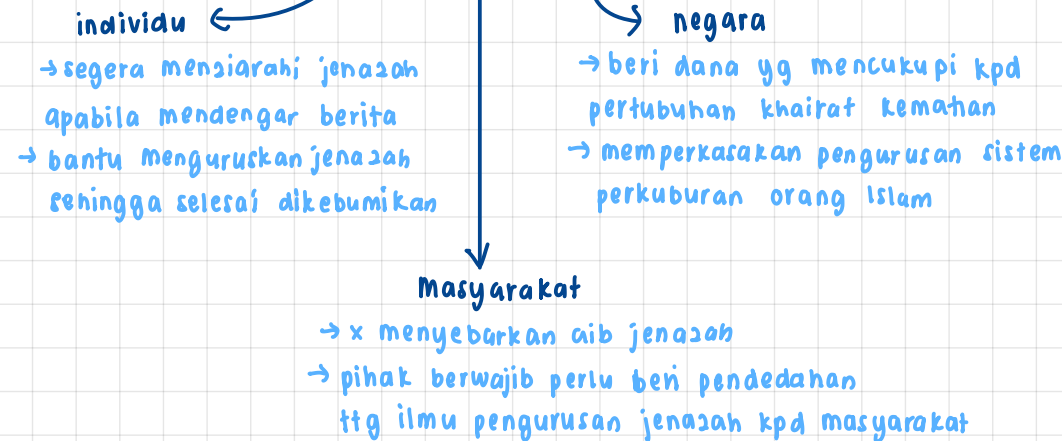 individu
→ segera menziarahi jenazah
apabila mendengar berita
→ bantu menguruskan jenazah
sehingga selesai dikebumikan
negara
→ beri dana yg mencukupi kpd
pertubuhan khairat kematian
→ memperkasakan pengurusan sistem
perkuburan orang Islam
masyarakat
→ x menyebarkan aib jenazah
→ pihak berwajib perlu beri pendedahan
ttg ilmu pengurusan jenazah kpd masyarakat